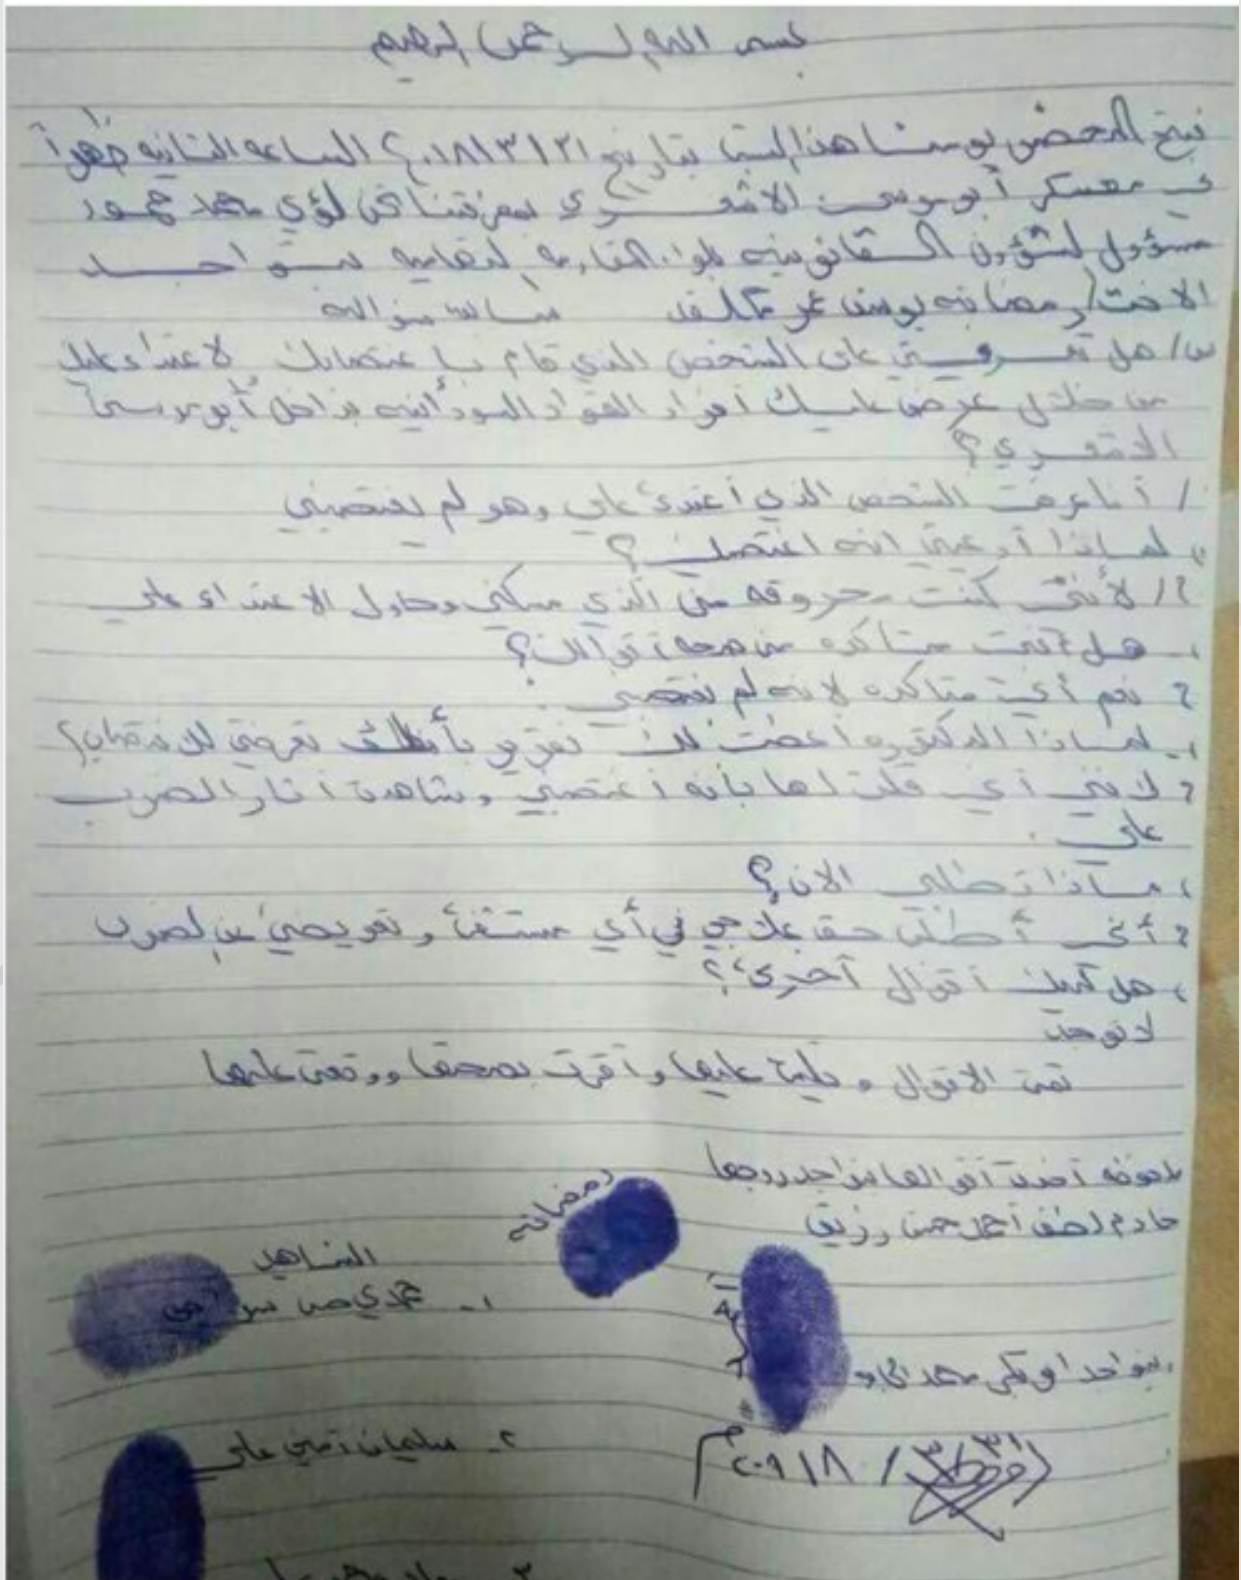 بسم الله الرحمن الرحيم
فتح المحضر يومنا هذا السبت بتاريخ ٢٠١٨/٣/٣١ الساعة الثانية ظهراً
في معسكر أبو موسى الأشعري بمعرفتنا نحن لؤي محمد حمود
مسؤول الشؤون القانونية
الاخت/ رمضانه يوسف عمر مكلفد
س/ هل تعرفين على الشخص الذي قام باغتصابك لاعتداء عليك
من خلال عرض عليك أفراد القوة السودانيه بداخل أبو موسى
الاشعري؟
/ أنا عرفت الشخص الذي أعتدى علي وهو لم يغتصبني
لماذا أدعيتي انه اغتصبك؟
ج/ لأنني كنت محروقه من الذي مسكني وحاول الاعتداء علي
هل أنت متاكده من صحة أقوالك؟
ج نعم أني متاكده لانه لم يغتصبني
لماذا الدكتوره أعطت لك تقرير بأنك تعرضتي للاغتصاب؟
ج لانني أني قلت لها بأنه أغتصبني وشاهدة أثار الضرب
علي.
ماذا تطلبي الان؟
ج أني أطلب حق علاجي في أي مستشفى وتعويضي عن الضرب
هل لديك أقوال أخرى؟
لا توجد
تمت الاقوال وتليت عليها وأقرت بصحتها ووقعت عليها
ملحوظه أخذت أقوالها بتواجد زوجها
خادم لطف أحمد حسن رزيق
رمضانه
الشاهد
١- حمدي حسن
وبتواجد ابوبكر محمد
٢- سلمان أمين علي
٣١/٣/٢٠١٨م
٣-